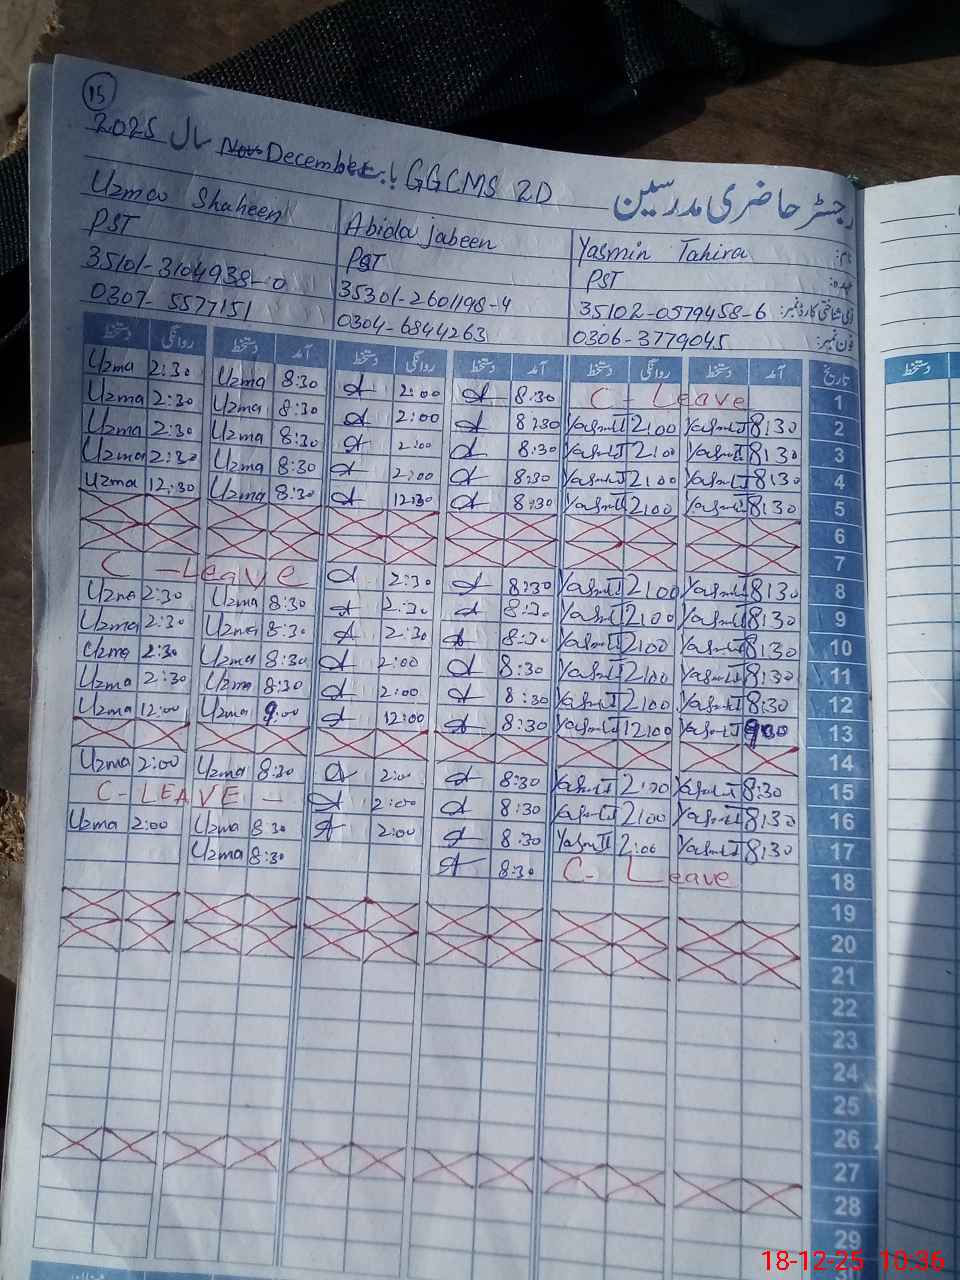 15
رجسٹر حاضری مدرسین GGCMS 2D بابت December سال 2025
نام: Yasmin Tahira Abida jabeen Uzma Shaheen
عہدہ: PST PST PST
قومی شناختی کارڈ نمبر: 35102-0579458-6 35301-2601198-4 35101-3104938-0
فون نمبر: 0306-3779045 0304-6844263 0307-5577151
تاریخ آمد دستخط روانگی دستخط آمد دستخط روانگی دستخط آمد دستخط روانگی دستخط
1 C - Leave 8:30 2:00 8:30 Uzma 2:30 Uzma
2 8:30 Yasmin 2:00 Yasmin 8:30 2:00 8:30 Uzma 2:30 Uzma
3 8:30 Yasmin 2:00 Yasmin 8:30 2:00 8:30 Uzma 2:30 Uzma
4 8:30 Yasmin 2:00 Yasmin 8:30 2:00 8:30 Uzma 2:30 Uzma
5 8:30 Yasmin 2:00 Yasmin 8:30 12:30 8:30 Uzma 12:30 Uzma
6
7
8 8:30 Yasmin 2:00 Yasmin 8:30 2:30 C - Leave
9 8:30 Yasmin 2:00 Yasmin 8:30 2:30 8:30 Uzma 2:30 Uzma
10 8:30 Yasmin 2:00 Yasmin 8:30 2:30 8:30 Uzma 2:30 Uzma
11 8:30 Yasmin 2:00 Yasmin 8:30 2:00 8:30 Uzma 2:30 Uzma
12 8:30 Yasmin 2:00 Yasmin 8:30 2:00 8:30 Uzma 2:30 Uzma
13 9:00 Yasmin 12:00 Yasmin 8:30 12:00 9:00 Uzma 12:00 Uzma
14
15 8:30 Yasmin 2:00 Yasmin 8:30 2:00 8:30 Uzma 2:00 Uzma
16 8:30 Yasmin 2:00 Yasmin 8:30 2:00 C - LEAVE -
17 8:30 Yasmin 2:00 Yasmin 8:30 2:00 8:30 Uzma 2:00 Uzma
18 C - Leave 8:30 8:30 Uzma
19
20
21
22
23
24
25
26
27
28
29
دستخط
18-12-25 10:36